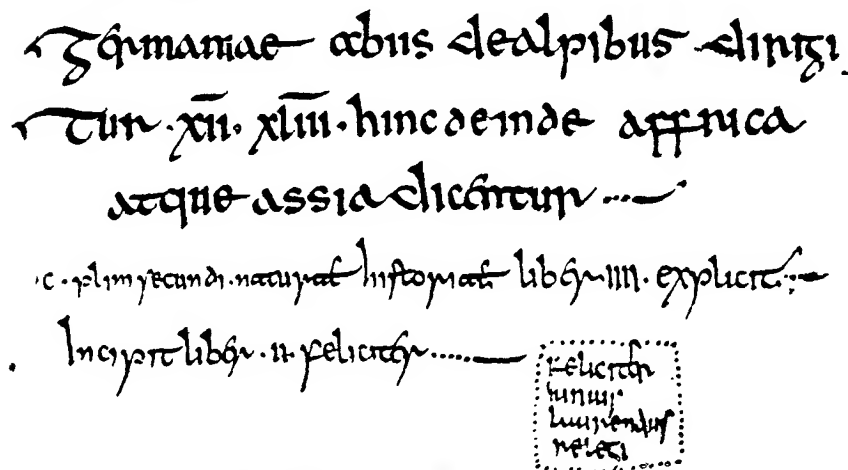 germaniae abiis dealpibus dirigi
tur · x̅i̅i̅ · x̅l̅i̅i̅i̅ · hinc deinde affrica
atque assia dicentur
·c· plini secundi · natural̄ historiał liber · iiii · explicit
Incipit liber · u · feliciter
feliciter
iunius
laurentius
relegi